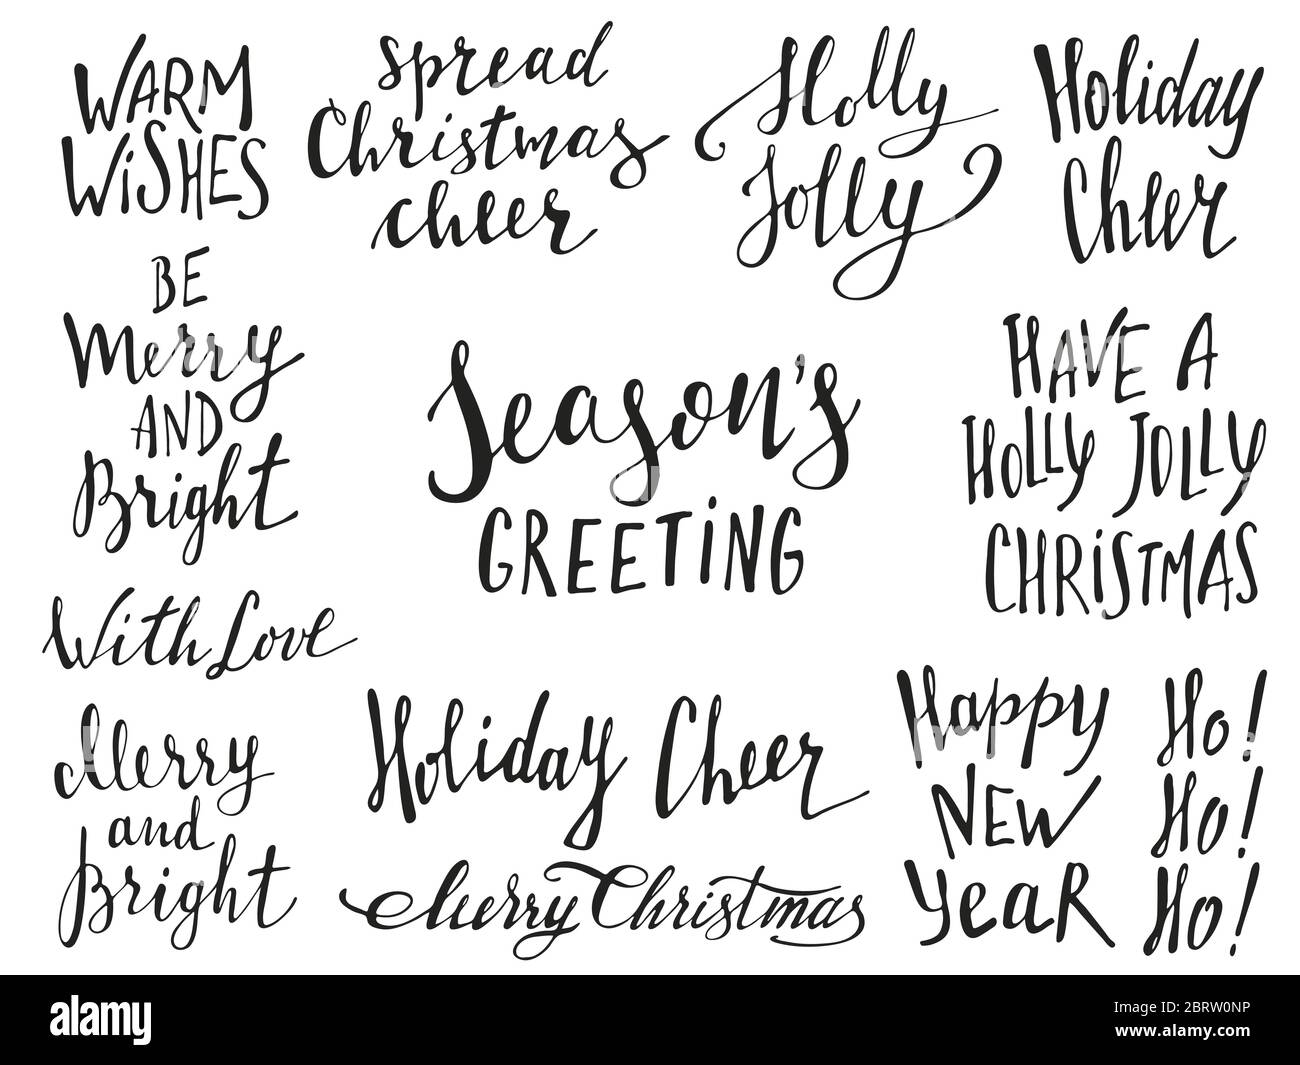 WARM
WiSHES
Spread
Christmas
cheer
Holly
Jolly
Holiday
Cheer
BE
Merry
AND
Bright
Season's
GREETiNG
HAVE A
HOLLY JOLLY
CHRiSTMAS
With Love
Merry
and
Bright
Holiday Cheer
Merry Christmas
Happy
NEW
YeaR
Ho!
Ho!
Ho!
alamy
Image ID: 2BRW0NP
www.alamy.com